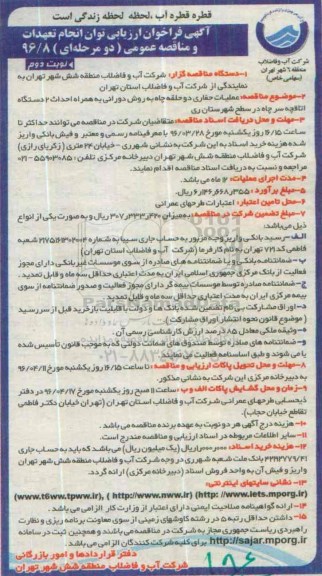 قطره قطره آب ،لحظه لحظه زندگی است
آگهی فراخوان ارزیابی توان انجام تعهدات
و مناقصه عمومی ( دو مرحله‌ای ) ۹۶/۸
نوبت دوم
شرکت آب وفاضلاب
منطقه ۶ شهر تهران
(سهامی خاص)
۱-دستگاه مناقصه گزار: شرکت آب و فاضلاب منطقه شش شهر تهران به
نمایندگی از شرکت آب و فاضلاب استان تهران
۲-موضوع مناقصه: عملیات حفاری دو حلقه چاه به روش دورانی به همراه احداث ۲ دستگاه
اتاقچه سر چاه در سطح شهرستان ری
۳-مهلت و محل دریافت اسناد مناقصه: متقاضیان شرکت در مناقصه می توانند حداکثر تا
ساعت ۱۶/۱۵ روز یکشنبه مورخ ۹۶/۰۳/۲۸ با معرفینامه رسمی و معتبر و فیش بانکی واریز
شده هزینه خرید اسناد به این شرکت به نشانی شهرری - خیابان ۲۴ متری (زکریای رازی)
شرکت آب و فاضلاب منطقه شش شهر تهران دبیرخانه مرکزی تلفن :
مراجعه و نسبت به دریافت اسناد مناقصه اقدام نمایند.
۴-مدت اجرای عملیات: ۱۲ ماه می باشد.
۵-مبلغ برآورد :
۶-محل تامین اعتبار : اعتبارات طرحهای عمرانی
۷-مبلغ تضمین شرکت در مناقصه: به میزان ریال و به صورت یکی از انواع
ذیل می‌باشد:
الف- رسید بانکی واریز وجه مزبور به حساب جاری سیبا به شماره شعبه
فاطمی کد ۷۲۱ تهران به نام کارفرما (شرکت آب و فاضلاب استان تهران)
ب- ضمانتنامه بانکی و یا ضمانتنامه های صادره از سوی موسسات غیر بانکی دارای مجوز
فعالیت از بانک مرکزی جمهوری اسلامی ایران به مدت اعتباری حداقل سه ماه و قابل تمدید.
ج- ضمانتنامه صادره توسط موسسات بیمه گر دارای مجوز فعالیت و صدور ضمانتنامه از سوی
بیمه مرکزی ایران به مدت اعتباری حداقل سه ماه و قابل تمدید
د- اوراق مشارکت بی نام تضمین شده بانک ها و دولت با قابلیت بازخرید قبل از سررسید
( موضوع قانون نحوه انتشار اوراق مشارکت )
ه- وثیقه ملکی معادل ۸۵ درصد ارزش کارشناسی رسمی آن.
و- ضمانتنامه های صادره توسط صندوق های ضمانت دولتی که به موجب قانون تاسیس شده
یا می شوند و طبق اساسنامه فعالیت می نمایند.
۸-مهلت و محل تحویل پاکات ارزیابی و مناقصه: تا ساعت ۱۶/۱۵ روز یکشنبه مورخ
به دبیرخانه مرکزی این شرکت به نشانی مذکور.
۹-زمان و محل گشایش پاکات الف و ب : ساعت ۱۱ صبح روز یکشنبه مورخ در دفتر
ذیحسابی طرحهای عمرانی شرکت آب و فاضلاب استان تهران (تهران خیابان دکتر فاطمی
تقاطع خیابان حجاب).
۱۰- هزینه درج آگهی هر دو نوبت به عهده برنده مناقصه می باشد.
۱۱- سایر اطلاعات مربوطه در اسناد ارزیابی و مناقصه مندرج است.
۱۲- هزینه خرید اسناد: ریال (یک میلیون ریال) می باشد که باید به حساب جاری
بانک ملت شعبه شهرری در وجه شرکت آب و فاضلاب منطقه شش شهر تهران
واریز و فیش آن به واحد فروش اسناد (دبیرخانه مرکزی) ارائه گردد.
۱۳- نشانی سایتهای اینترنتی:
(www.t6ww.tpww.ir), ( http://www.nww.ir) (http: //www.iets.mporg.ir)
۱۴- ارائه گواهینامه صلاحیت ایمنی دارای اعتبار از وزارت کار الزامی می باشد .
۱۵- داشتن حداقل رتبه ۵ در رشته کاوشهای زمینی از سوی معاونت برنامه ریزی و نظارت
راهبردی ریاست جمهوری مجاز به شرکت در مناقصه می باشند و همچنین ثبت در سامانه
http://sajar.mporg.ir برای کلیه شرکت کنندگان الزامی می باشد
دفتر قراردادها و امور بازرگانی
شرکت آب و فاضلاب منطقه شش شهر تهران